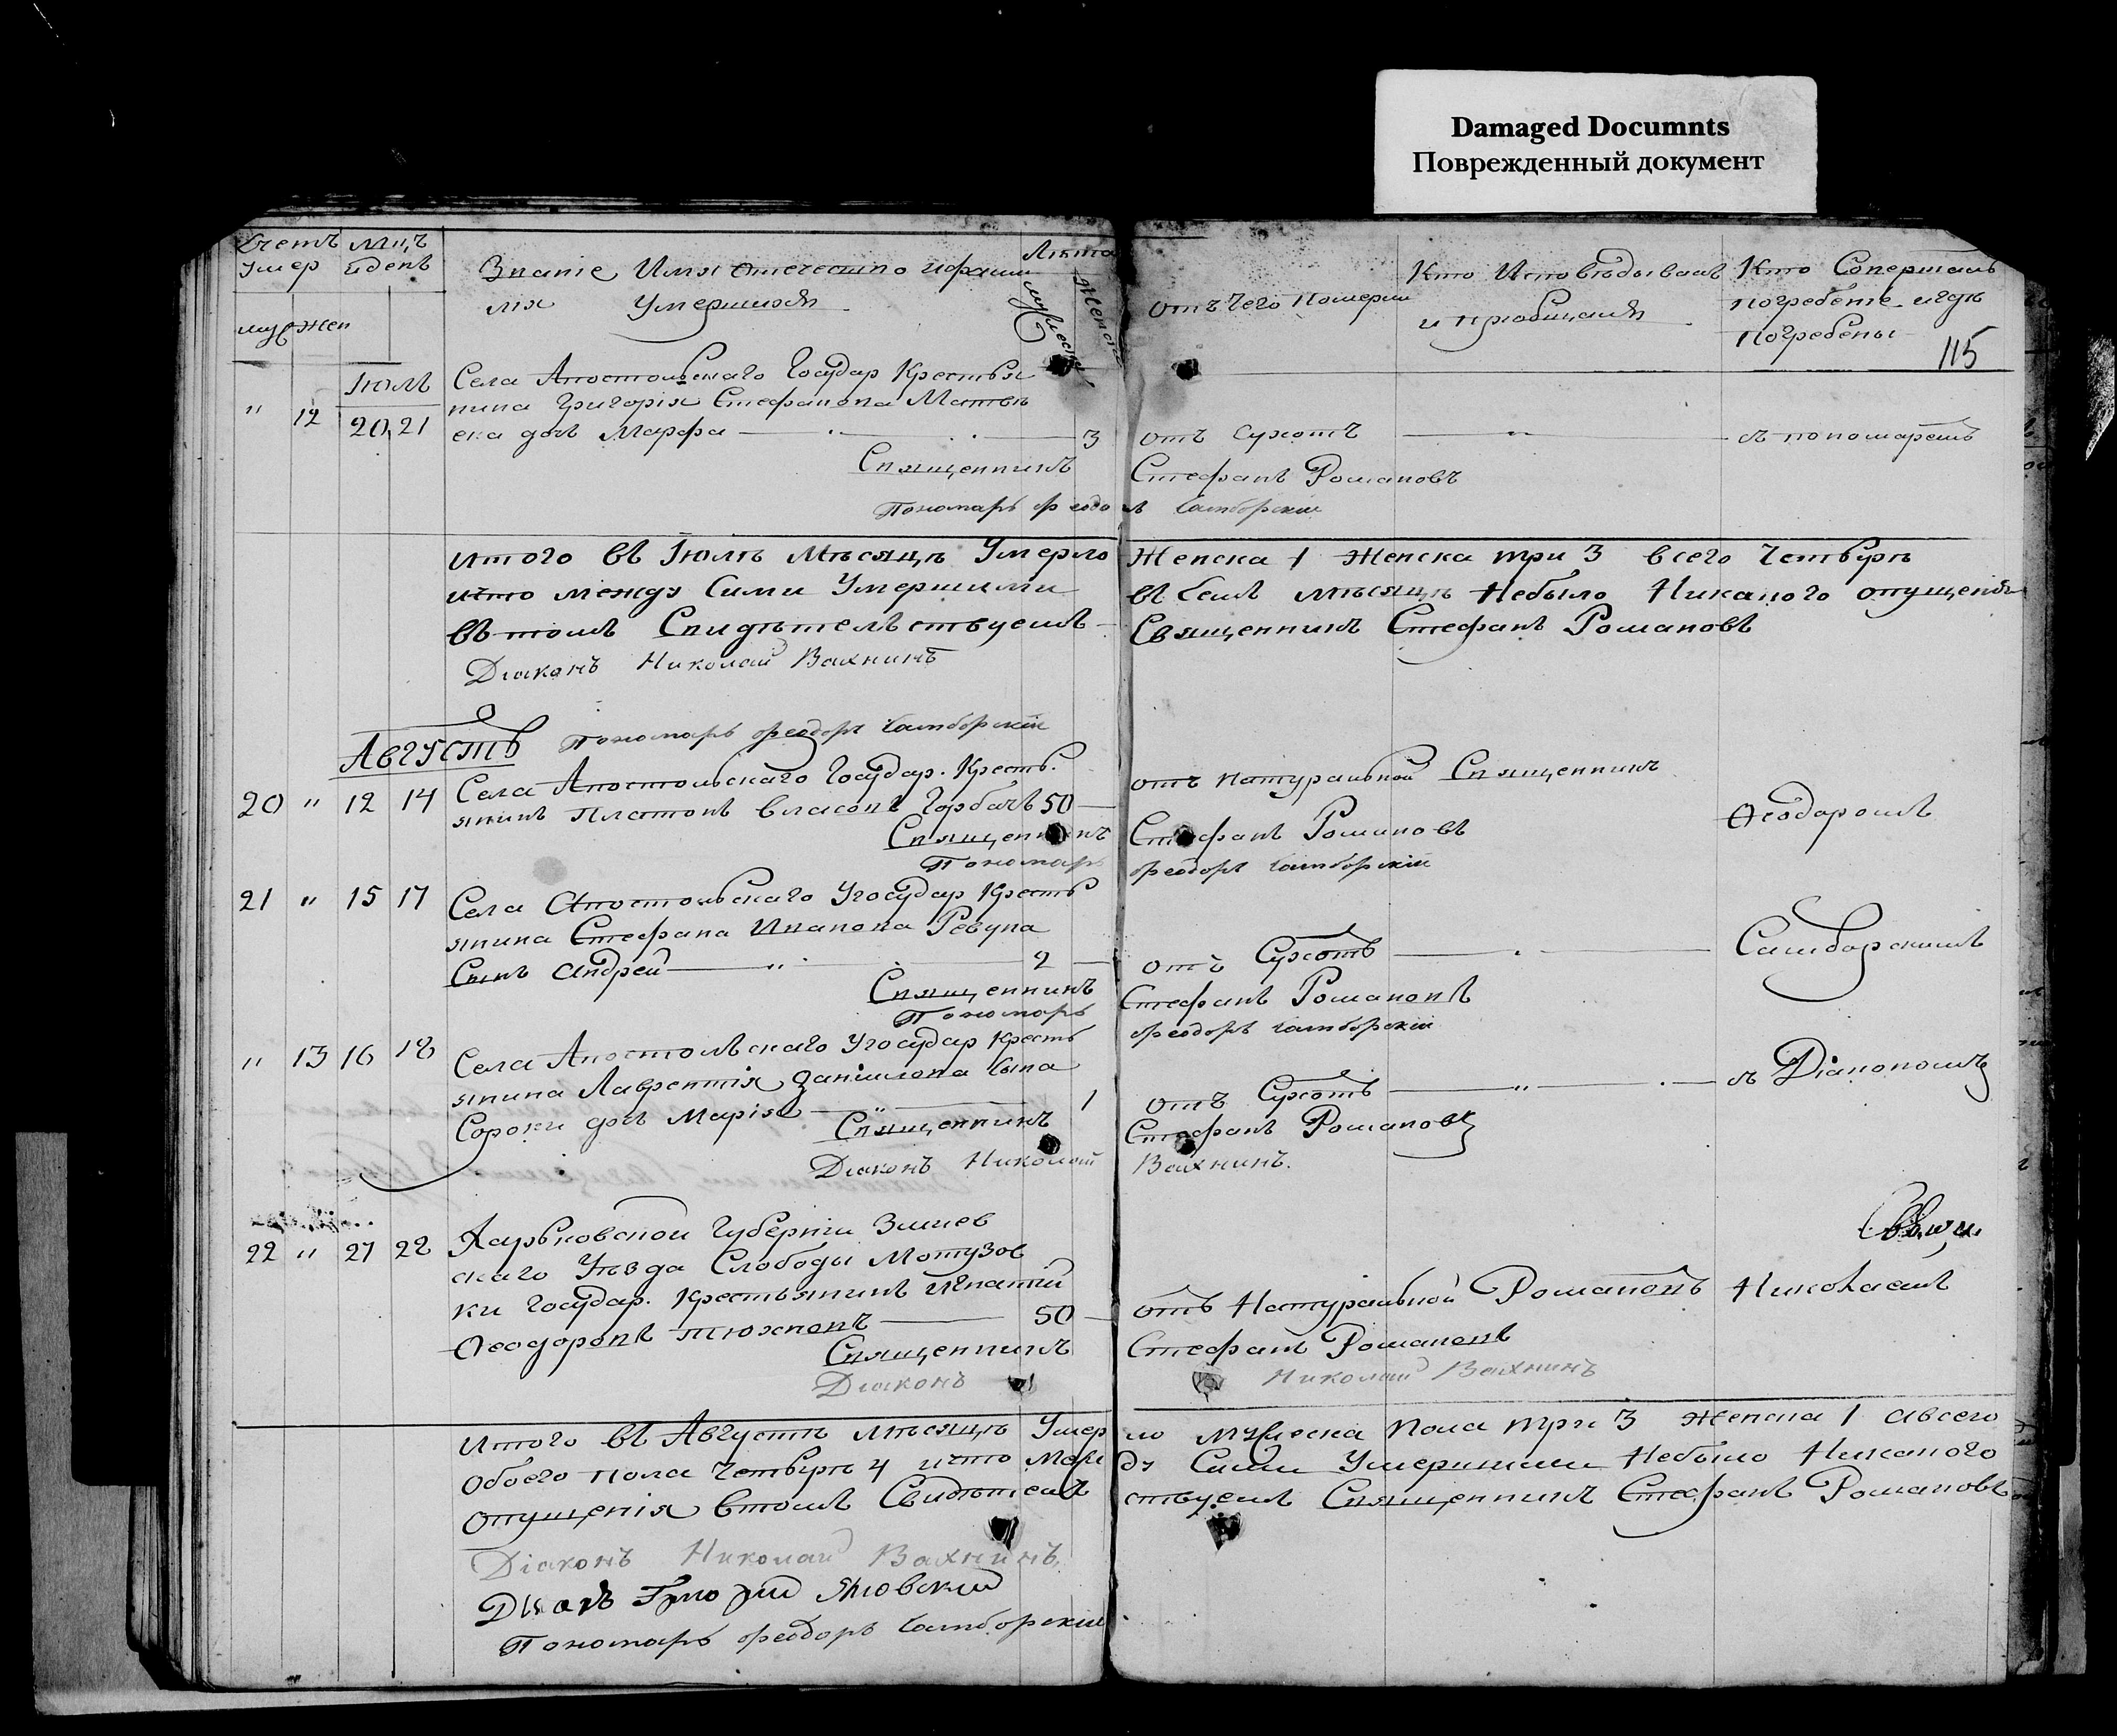 Damaged Documnts
Поврежденный документ
Счетъ умер
Мцъ иденъ
Званіе Имя отечество ифами
лія Умершихъ
Лѣта
муж жен
мужеска
Женска
Отъ чего померли
Кто Исповѣдывалъ
и приобщалъ
Кто Совершалъ
погребеніе игдѣ
погребены
115
Іюль
" 12 20 21
Села Апостольскаго Государ Крестья
нина Григорія Стефанова Матвѣ
ева дочь Марфа 3
отъ Сухотъ
съ пономаремъ
Священникъ Стефанъ Романовъ
Пономарь Феодоръ Самборскій
Итого въ Іюлѣ Мѣсяцѣ Умерло Женска 1 Женска три 3 всего Четвѣрѣ
ичто между Сими Умершими въ семъ мѣсяцѣ Небыло Никакого опущенія
въ томъ Свидѣтельствуемъ Священникъ Стефанъ Романовъ
Діаконъ Николай Вахнинъ
Пономарь Феодоръ Самборскій
Августъ
20 " 12 14
Села Апостольскаго Государ. Кресть.
янинъ Платонъ Власовъ Горбачъ 50
отъ Натуральной Священникъ
Ѳеодоромъ
Священникъ Стефанъ Романовъ
Пономарь Феодоръ Самборскій
21 " 15 17
Села Апостольскаго Государ Кресть
янина Стефана Иванова Ревуна
Сынъ Андрей 2
отъ Сухотъ
Самборскимъ
Священникъ Стефанъ Романовъ
Пономарь Феодоръ Самборскій
" 13 16 18
Села Апостольскаго Государ Кресть
янина Лаврентія Данилова Сына
Сороки дочь Марія 1
отъ Сухотъ
съ Діакономъ
Священникъ Стефанъ Романовъ
Діаконъ Николай Вахнинъ.
22 " 27 28
Харьковской Губерніи Зміев
скаго Уѣзда Слободы Мотузов
ки Государ. Крестьянинъ Игнатій
Ѳеодоровъ Тюхновъ 50
отъ Натуральной Романовъ Николаемъ
Священникъ Стефанъ Романовъ
Діаконъ Николай Вахнинъ
Итого въ Августѣ мѣсяцѣ Умерло мужеска Пола три 3 Женска 1 авсего
Обоего пола Четвѣрѣ 4 ичто Между Сими Умершими Небыло Никакого
опущенія втомъ Свидѣтельствуемъ Священникъ Стефанъ Романовъ
Діаконъ Николай Вахнинъ
Пономарь Феодоръ Самборскій